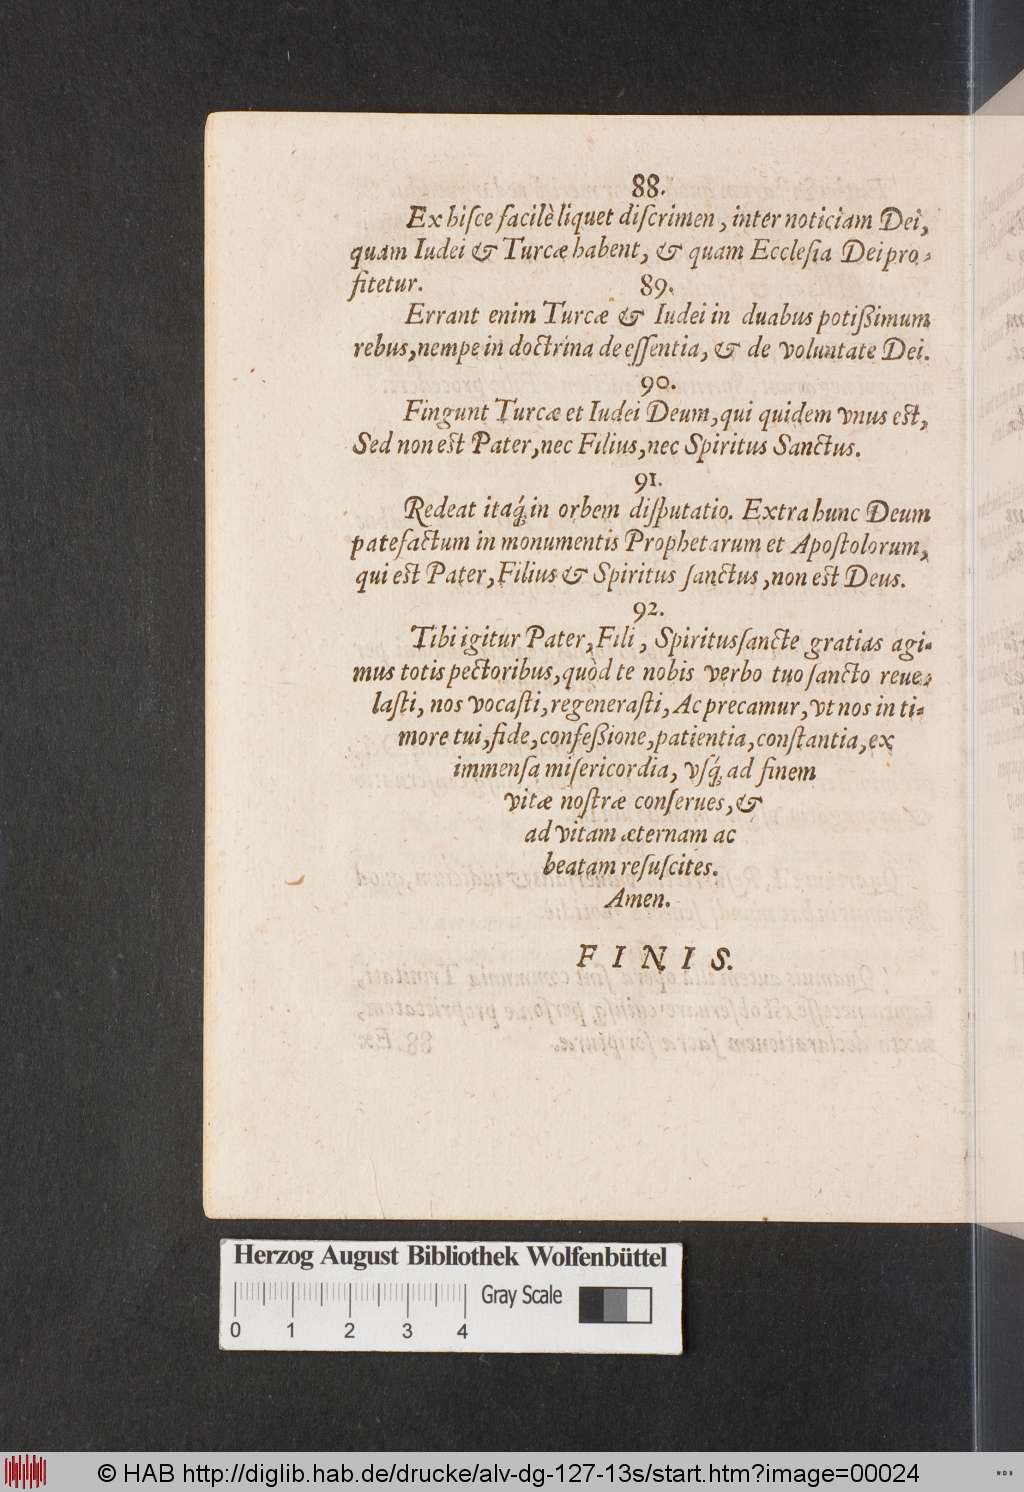 88.
Ex hiſce facilè liquet diſcrimen, inter noticiam Dei,
quam Iudei & Turcæ habent, & quam Eccleſia Dei pro-
fitetur.
89.
Errant enim Turcæ & Iudei in duabus potiſſimum
rebus, nempe in doctrina de eſſentia, & de voluntate Dei.
90.
Fingunt Turcæ et Iudei Deum, qui quidem vnus est,
Sed non est Pater, nec Filius, nec Spiritus Sanctus.
91.
Redeat itaq́; in orbem diſputatio. Extra hunc Deum
patefactum in monumentis Prophetarum et Apoſtolorum,
qui est Pater, Filius & Spiritus ſanctus, non est Deus.
92.
Tibi igitur Pater, Fili, Spiritus ſancte gratias agi-
mus totis pectoribus, quòd te nobis verbo tuo ſancto reue-
laſti, nos vocaſti, regeneraſti, Ac precamur, vt nos in ti-
more tui, fide, confeßione, patientia, conſtantia, ex
immenſa miſericordia, vſq́; ad finem
vitæ noſtræ conſerues, &
ad vitam æternam ac
beatam reſuſcites.
Amen.
FINIS.
Herzog August Bibliothek Wolfenbüttel
Gray Scale
0 1 2 3 4
© HAB http://diglib.hab.de/drucke/alv-dg-127-13s/start.htm?image=00024